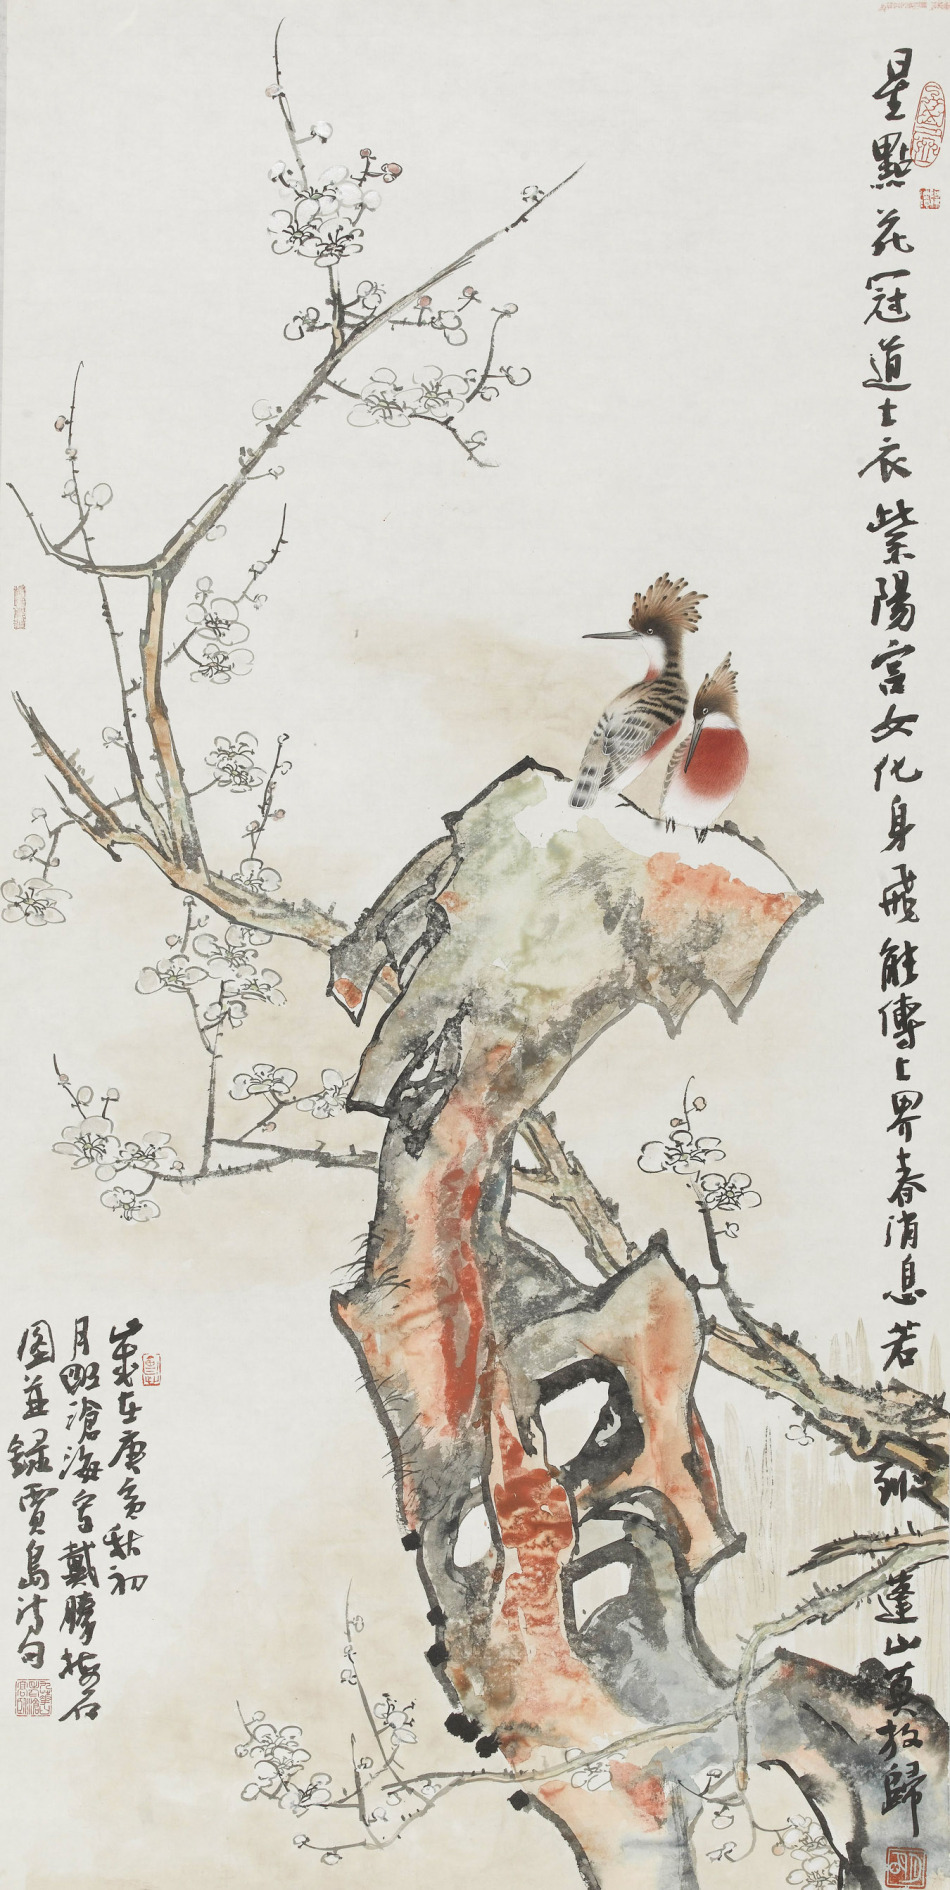 星點花冠道士衣紫陽宮女化身飛能傳上界春消息若到蓬山莫放歸
歲在庚寅秋初
月明滄海寫戴勝梅石
圖並錄賈島詩句